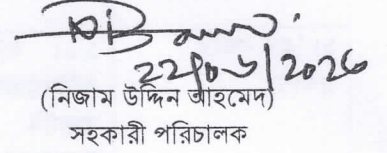 22/06/2026
(নিজাম উদ্দিন আহমেদ)
সহকারী পরিচালক